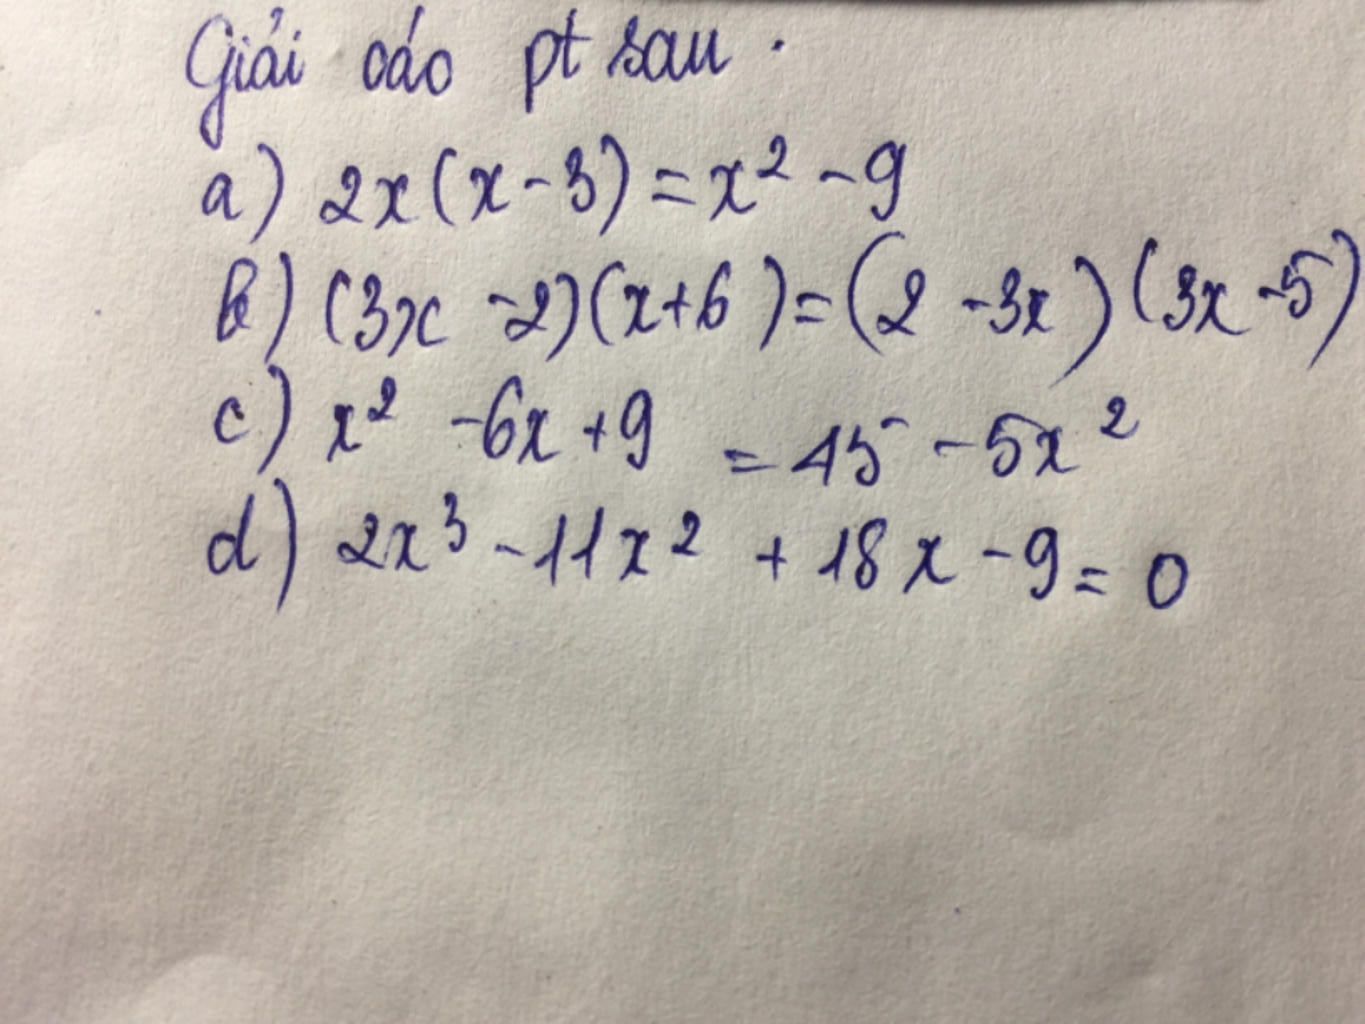 Giải các pt sau.
a) 2x(x-3)=x² -9
b) (3x -2)(x+6)=(2 -3x)(3x-5)
c) x² -6x+9 = 45 -5x²
d) 2x³ -11x² +18x -9= 0